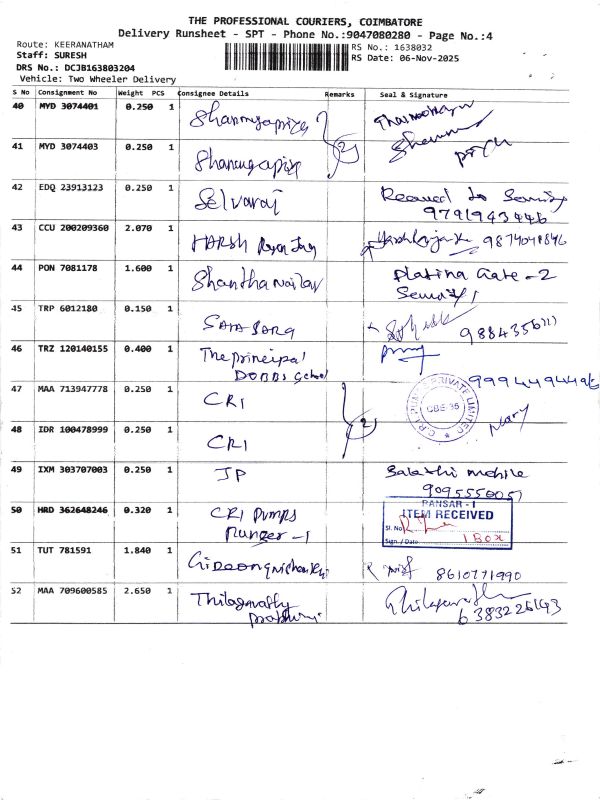 THE PROFESSIONAL COURIERS, COIMBATORE
Delivery Runsheet - SPT - Phone No.:9047080280 - Page No.:4
Route: KEERANATHAM
Staff: SURESH
DRS No.: DCJB163803204
Vehicle: Two Wheeler Delivery
RS No.: 1638032
RS Date: 06-Nov-2025
S No Consignment No Weight PCS Consignee Details Remarks Seal & Signature
40 MYD 3074401 0.250 1 Shanmugapriya
41 MYD 3074403 0.250 1 Shanmugapriya 2
42 EDQ 23913123 0.250 1 Selvaraj Received to Security
9791943446
43 CCU 200209360 2.070 1 HARSH 9874048846
44 PON 7081178 1.600 1 Shantha Platina Gate - 2
Security
45 TRP 6012180 0.150 1
46 TRZ 120140155 0.400 1 The principal
DOBBS School
47 MAA 713947778 0.250 1 CRI 9994494496
C.R.I. PUMPS PRIVATE LIMITED
CBE-35
48 IDR 100478999 0.250 1 CRI 2 Mary
49 IXM 303707003 0.250 1 JP mobile
50 HRD 362648246 0.320 1 CRI Pumps
PANSAR - I
ITEM RECEIVED
Sl. No
Sign / Date 1 BOX
51 TUT 781591 1.840 1 8610771990
52 MAA 709600585 2.650 1 Thilagavathy
6383226193